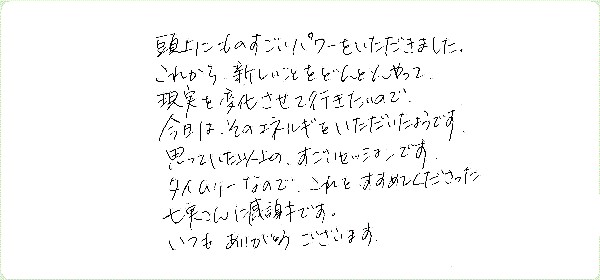 頭上にものすごいパワーをいただきました。
これから、新しいことをどんどんやって、
現実を変化させて行きたいので、
今日は、そのエネルギをいただいたようです。
思っていた以上の、すごいセッションです。
タイムリーなので、これをすすめてくださった
七実さんに感謝です。
いつも ありがとう ございます。